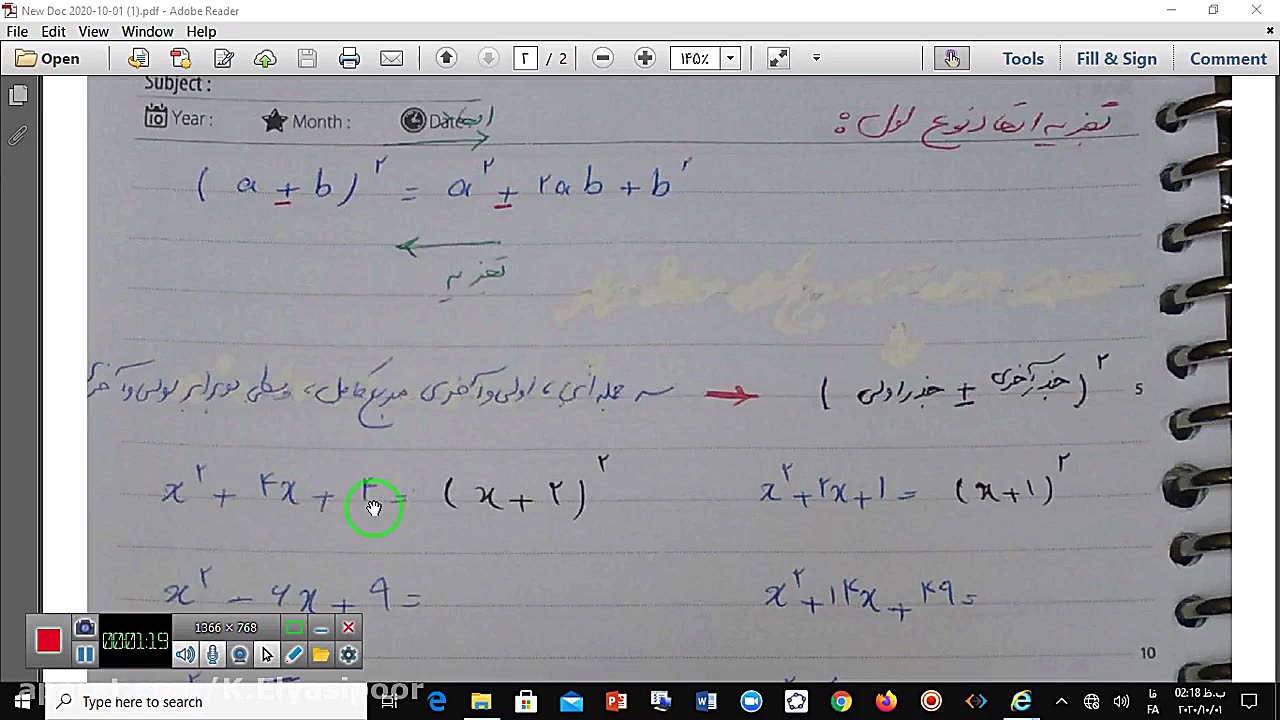 New Doc 2020-10-01 (1).pdf - Adobe Reader
File Edit View Window Help
Open ۲ / 2 ۱۴۵٪ Tools Fill & Sign Comment
Subject :
Year : Month : Date اتحاد
تجزیه اتحاد نوع اول :
(a ± b)^۲ = a^۲ ± ۲ab + b^۲
تجزیه
سه جمله ای، اولی و آخری مربع کامل، وسطی دو برابر اولی و آخری
(جذر اولی ± جذر آخری)^۲ 5
x^۲ + ۴x + ۴ = (x + ۲)^۲
x^۲ + ۲x + ۱ = (x + ۱)^۲
x^۲ - ۶x + ۹ =
x^۲ + ۱۴x + ۴۹ =
10
1366 × 768
00:01:19
aparat.com/K.Elyasipoor
Type here to search
فا
FA
02:18 ب.ظ
۲۰۲۰/۱۰/۰۱